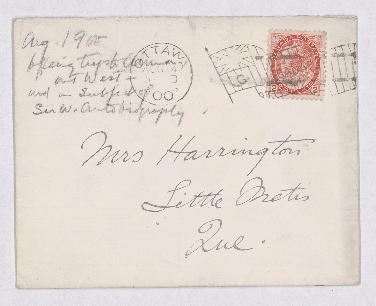 Aug. 1900
out West +
and on subject of
Sir W's Autobiography
OTTAWA
00
Mrs Harrington
Little Metis
Que.